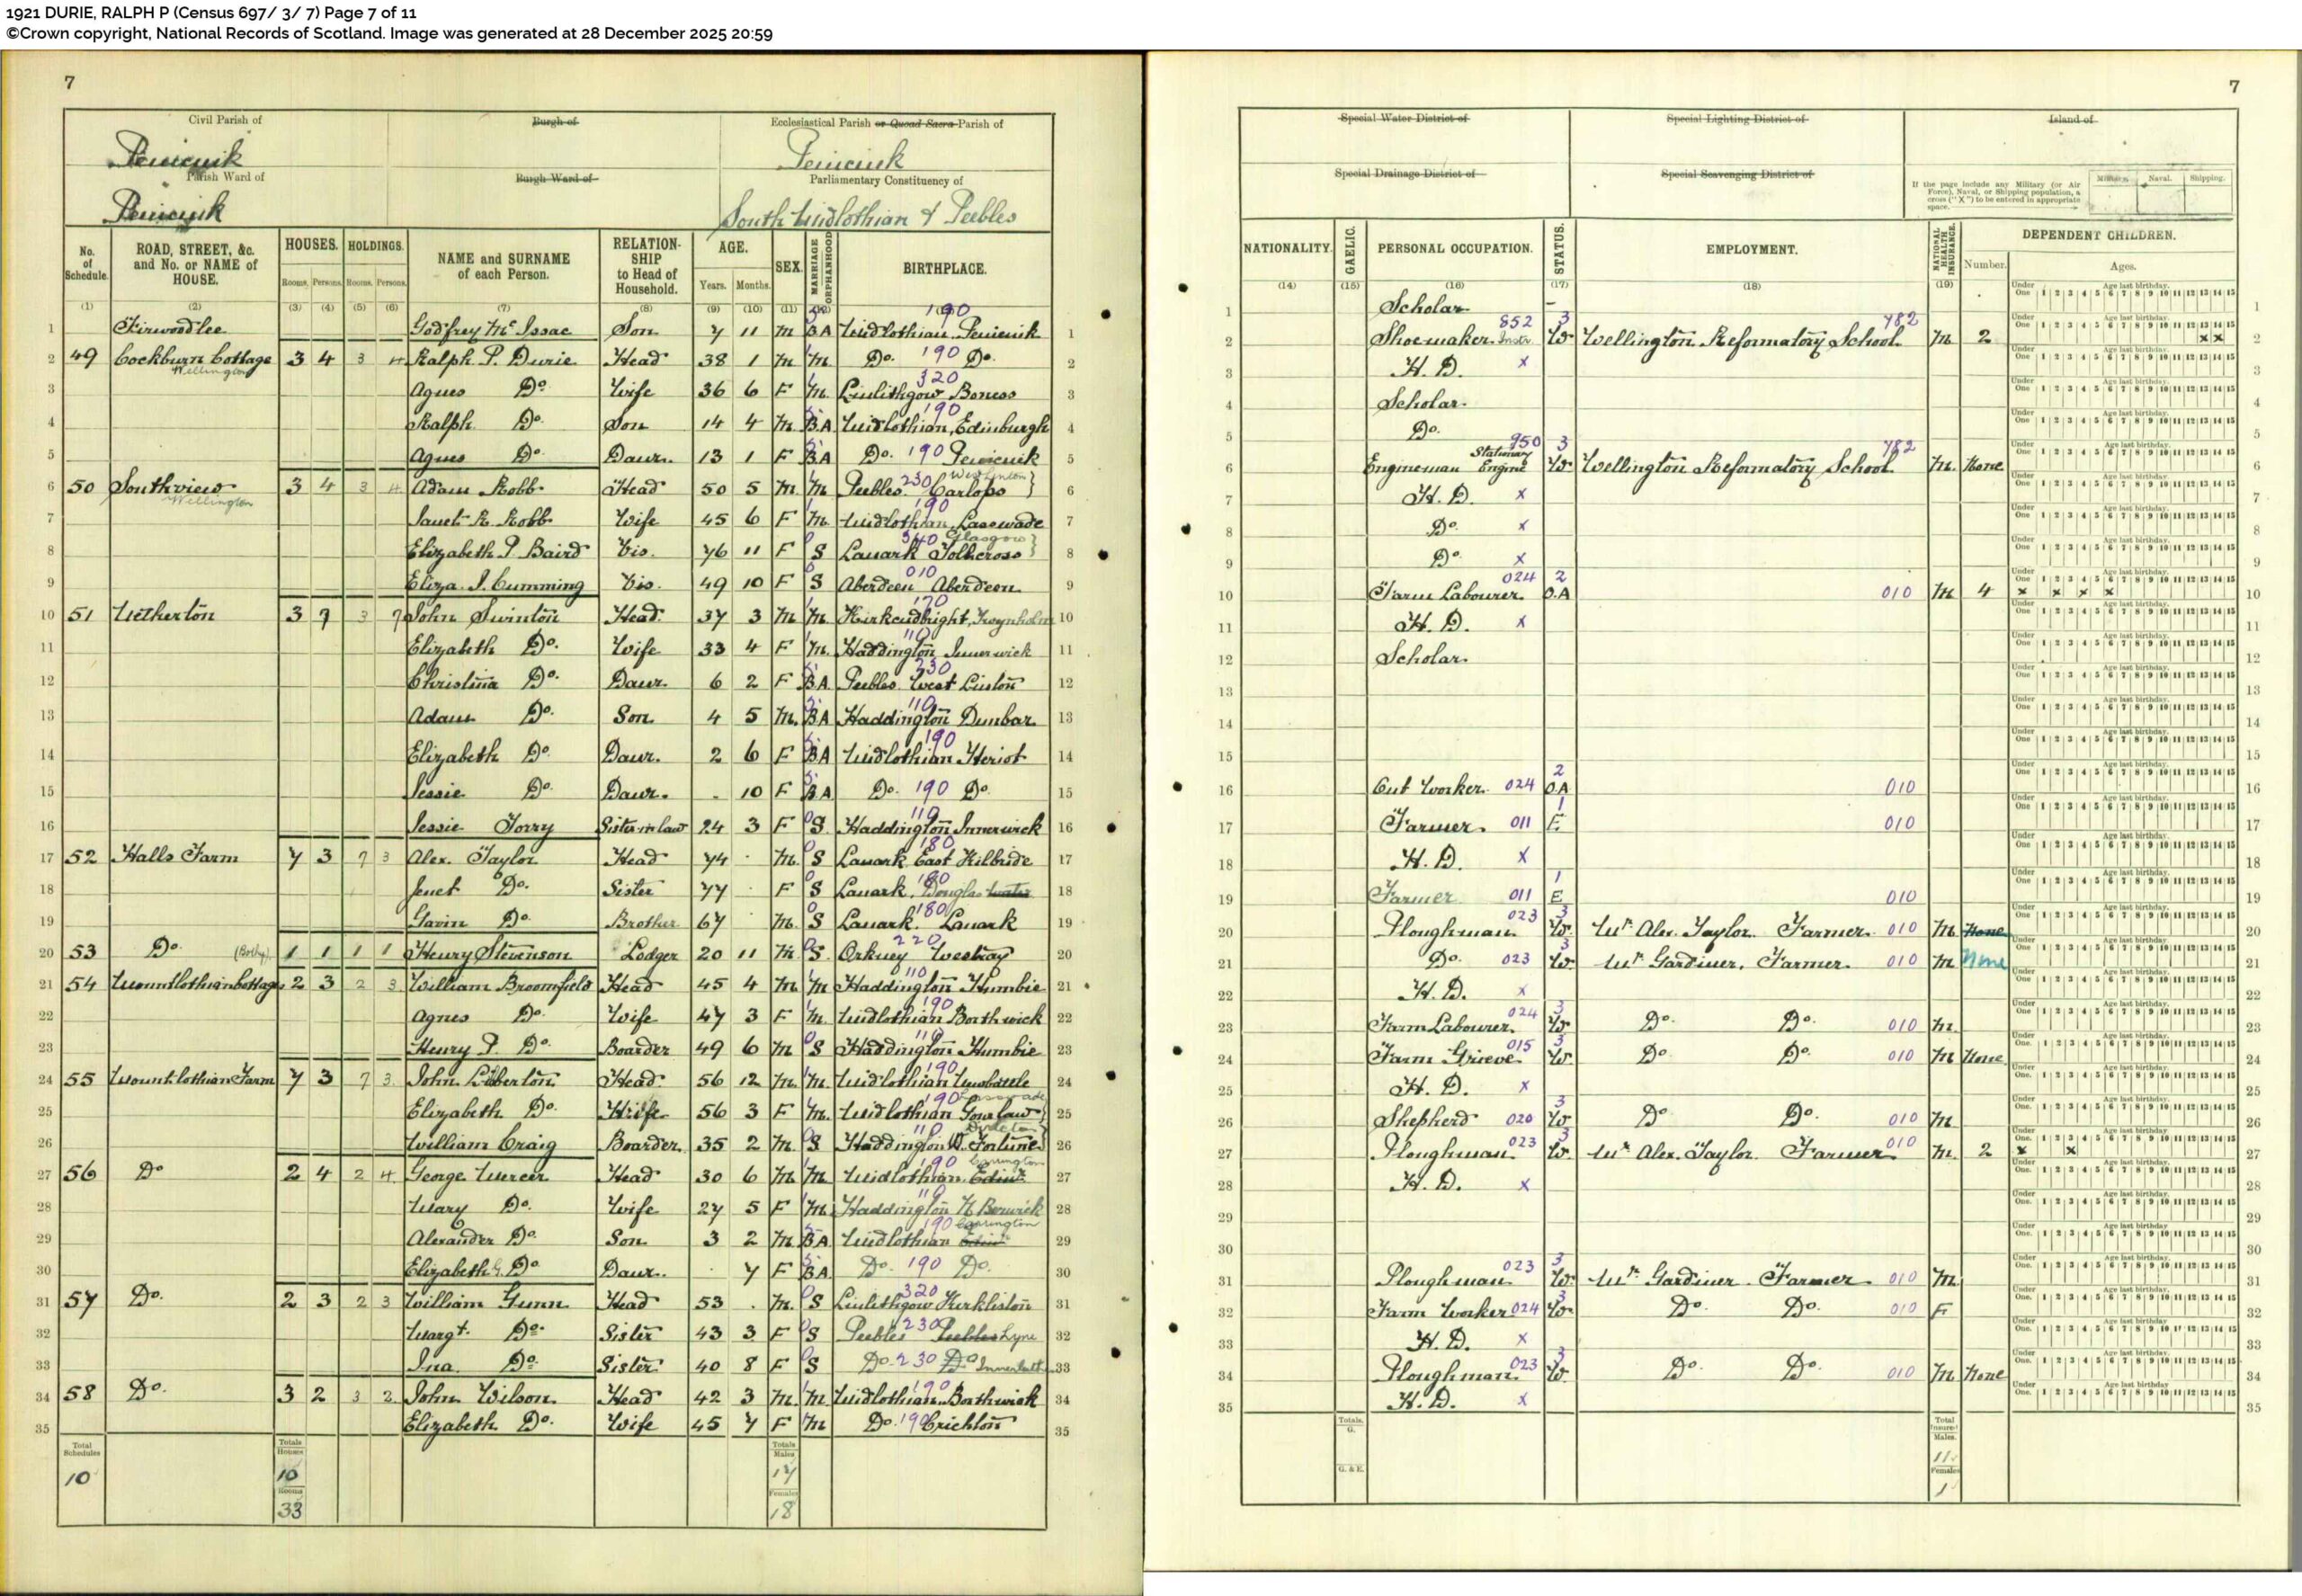 1921 DURIE, RALPH P (Census 697/ 3/ 7) Page 7 of 11
©Crown copyright, National Records of Scotland. Image was generated at 28 December 2025 20:59
7
Civil Parish of Burgh of Ecclesiastical Parish or Quoad Sacra Parish of
Penicuik Penicuik
Parish Ward of Burgh Ward of Parliamentary Constituency of
Penicuik South Midlothian & Peebles
No. of Schedule. ROAD, STREET, &c. and No. or NAME of HOUSE. HOUSES. Rooms. Persons. HOLDINGS. Rooms. Persons. NAME and SURNAME of each Person. RELATIONSHIP to Head of Household. AGE. Years. Months. SEX. MARRIAGE ORPHANHOOD BIRTHPLACE.
(1) (2) (3) (4) (5) (6) (7) (8) (9) (10) (11) (12) (13)
1 Kirwoodlee Godfrey Mc Issac Son 7 11 M BA Midlothian Penicuik 190 1
2 49 Cockburn Cottage Wellington 3 4 3 4 Ralph P. Durie Head 38 1 M M Do. 190 Do. 2
3 Agnes Do. Wife 36 6 F M Linlithgow Boness 320 3
4 Ralph Do. Son 14 4 M BA Midlothian, Edinburgh 190 4
5 Agnes Do. Daur. 13 1 F BA Do. 190 Penicuik 5
6 50 Southview Wellington 3 4 3 4 Adam Robb Head 50 5 M M Peebles 230 Carlops West Linton 6
7 Janet R. Robb Wife 45 6 F M Midlothian, Lasswade 190 7
8 Elizabeth P. Baird Vis. 76 11 F S Lanark Tollcross Glasgow 340 8
9 Eliza. J. Cumming Vis. 49 10 F S Aberdeen Aberdeen 010 9
10 51 Netherton 3 7 3 7 John Swinton Head 37 3 M M Kirkcudbright, Twynholm 170 10
11 Elizabeth Do. Wife 33 4 F M Haddington Innerwick 110 11
12 Christina Do. Daur. 6 2 F BA Peebles West Linton 230 12
13 Adam Do. Son 4 5 M BA Haddington Dunbar 110 13
14 Elizabeth Do. Daur. 2 6 F BA Midlothian Heriot 190 14
15 Jessie Do. Daur. - 10 F BA Do. 190 Do. 15
16 Jessie Torry Sister in law 24 3 F S Haddington Innerwick 110 16
17 52 Halls Farm 7 3 7 3 Alex. Taylor Head 74 M S Lanark East Kilbride 180 17
18 Jenet Do. Sister 77 F S Lanark. Douglas water 180 18
19 Gavin Do. Brother 67 M S Lanark. Lanark 180 19
20 53 Do. (Bothy) 1 1 1 1 Henry Stevenson Lodger 20 11 M S Orkney Westray 220 20
21 54 Mountlothian Cottage 2 3 2 3 William Broomfield Head 45 4 M M Haddington Humbie 110 21
22 Agnes Do. Wife 47 3 F M Midlothian Borthwick 190 22
23 Henry P. Do. Boarder 49 6 M S Haddington Humbie 110 23
24 55 Mountlothian Farm 7 3 7 3 John Liberton Head 56 12 M M Midlothian Newbattle 190 24
25 Elizabeth Do. Wife 56 3 F M Midlothian Gourlaw Lasswade 190 25
26 William Craig Boarder 35 2 M S Haddington W. Fortune Dirleton 110 26
27 56 Do 2 4 2 4 George Mercer Head 30 6 M M Midlothian Edinr Carrington 190 27
28 Mary Do. Wife 27 5 F M Haddington N. Berwick 110 28
29 Alexander Do. Son 3 2 M BA Midlothian Edinr Carrington 190 29
30 Elizabeth G. Do. Daur. 7 F BA Do. 190 Do. 30
31 57 Do. 2 3 2 3 William Gunn Head 53 . M S Linlithgow Kirkliston 320 31
32 Margt. Do. Sister 43 3 F S Peebles 230 Peebles Lyne 32
33 Ina Do. Sister 40 8 F S Do. 230 Do 33
34 58 Do. 3 2 3 2 John Wilson Head 42 3 M M Midlothian Borthwick 190 34
35 Elizabeth Do. Wife 45 7 F M Do. 190 Crichton 35
Total Schedules 10 Totals Houses 10 Rooms 33 Totals Males 17 Females 18
7
Special Water District of Special Lighting District of Island of
Special Drainage District of Special Scavenging District of If the page include any Military (or Air Force), Naval, or Shipping population, a cross ("X") to be entered in appropriate space. Military. Naval. Shipping.
NATIONALITY. GAELIC. PERSONAL OCCUPATION. STATUS. EMPLOYMENT. NATIONAL HEALTH INSURANCE. DEPENDENT CHILDREN. Number. Ages.
(14) (15) (16) (17) (18) (19) Under One Age last birthday. 1 2 3 4 5 6 7 8 9 10 11 12 13 14 15
1 Scholar - 1
2 Shoemaker Instr. 852 3 W Wellington Reformatory School 782 M 2 x x 2
3 H. D. x 3
4 Scholar 4
5 Do. 5
6 Engineman Stationary Engine 950 3 W Wellington Reformatory School 782 M None 6
7 H. D. x 7
8 Do. x 8
9 Do. x 9
10 Farm Labourer 024 2 O.A 010 M 4 x x x x 10
11 H. D. x 11
12 Scholar 12
13 13
14 14
15 15
16 Out Worker 024 2 O.A 010 16
17 Farmer 011 1 E 010 17
18 H. D. x 18
19 Farmer 011 1 E 010 19
20 Ploughman 023 3 W Mr. Alex. Taylor. Farmer 010 M None 20
21 Do. 023 3 W Mr. Gardiner, Farmer 010 M None 21
22 H. D. x 22
23 Farm Labourer 024 3 W Do. Do. 010 M 23
24 Farm Grieve 015 3 W Do Do. 010 M None 24
25 H. D. x 25
26 Shepherd 020 3 W Do Do. 010 M 26
27 Ploughman 023 3 W Mr. Alex. Taylor. Farmer 010 M 2 x x 27
28 H. D. x 28
29 29
30 30
31 Ploughman 023 3 W Mr. Gardiner. Farmer 010 M 31
32 Farm Worker 024 3 W Do. Do. 010 F 32
33 H. D. x 33
34 Ploughman 023 3 W Do. Do. 010 M None 34
35 H. D. x 35
Totals. G. G. & E. Total Insured Males. 11 Females 1